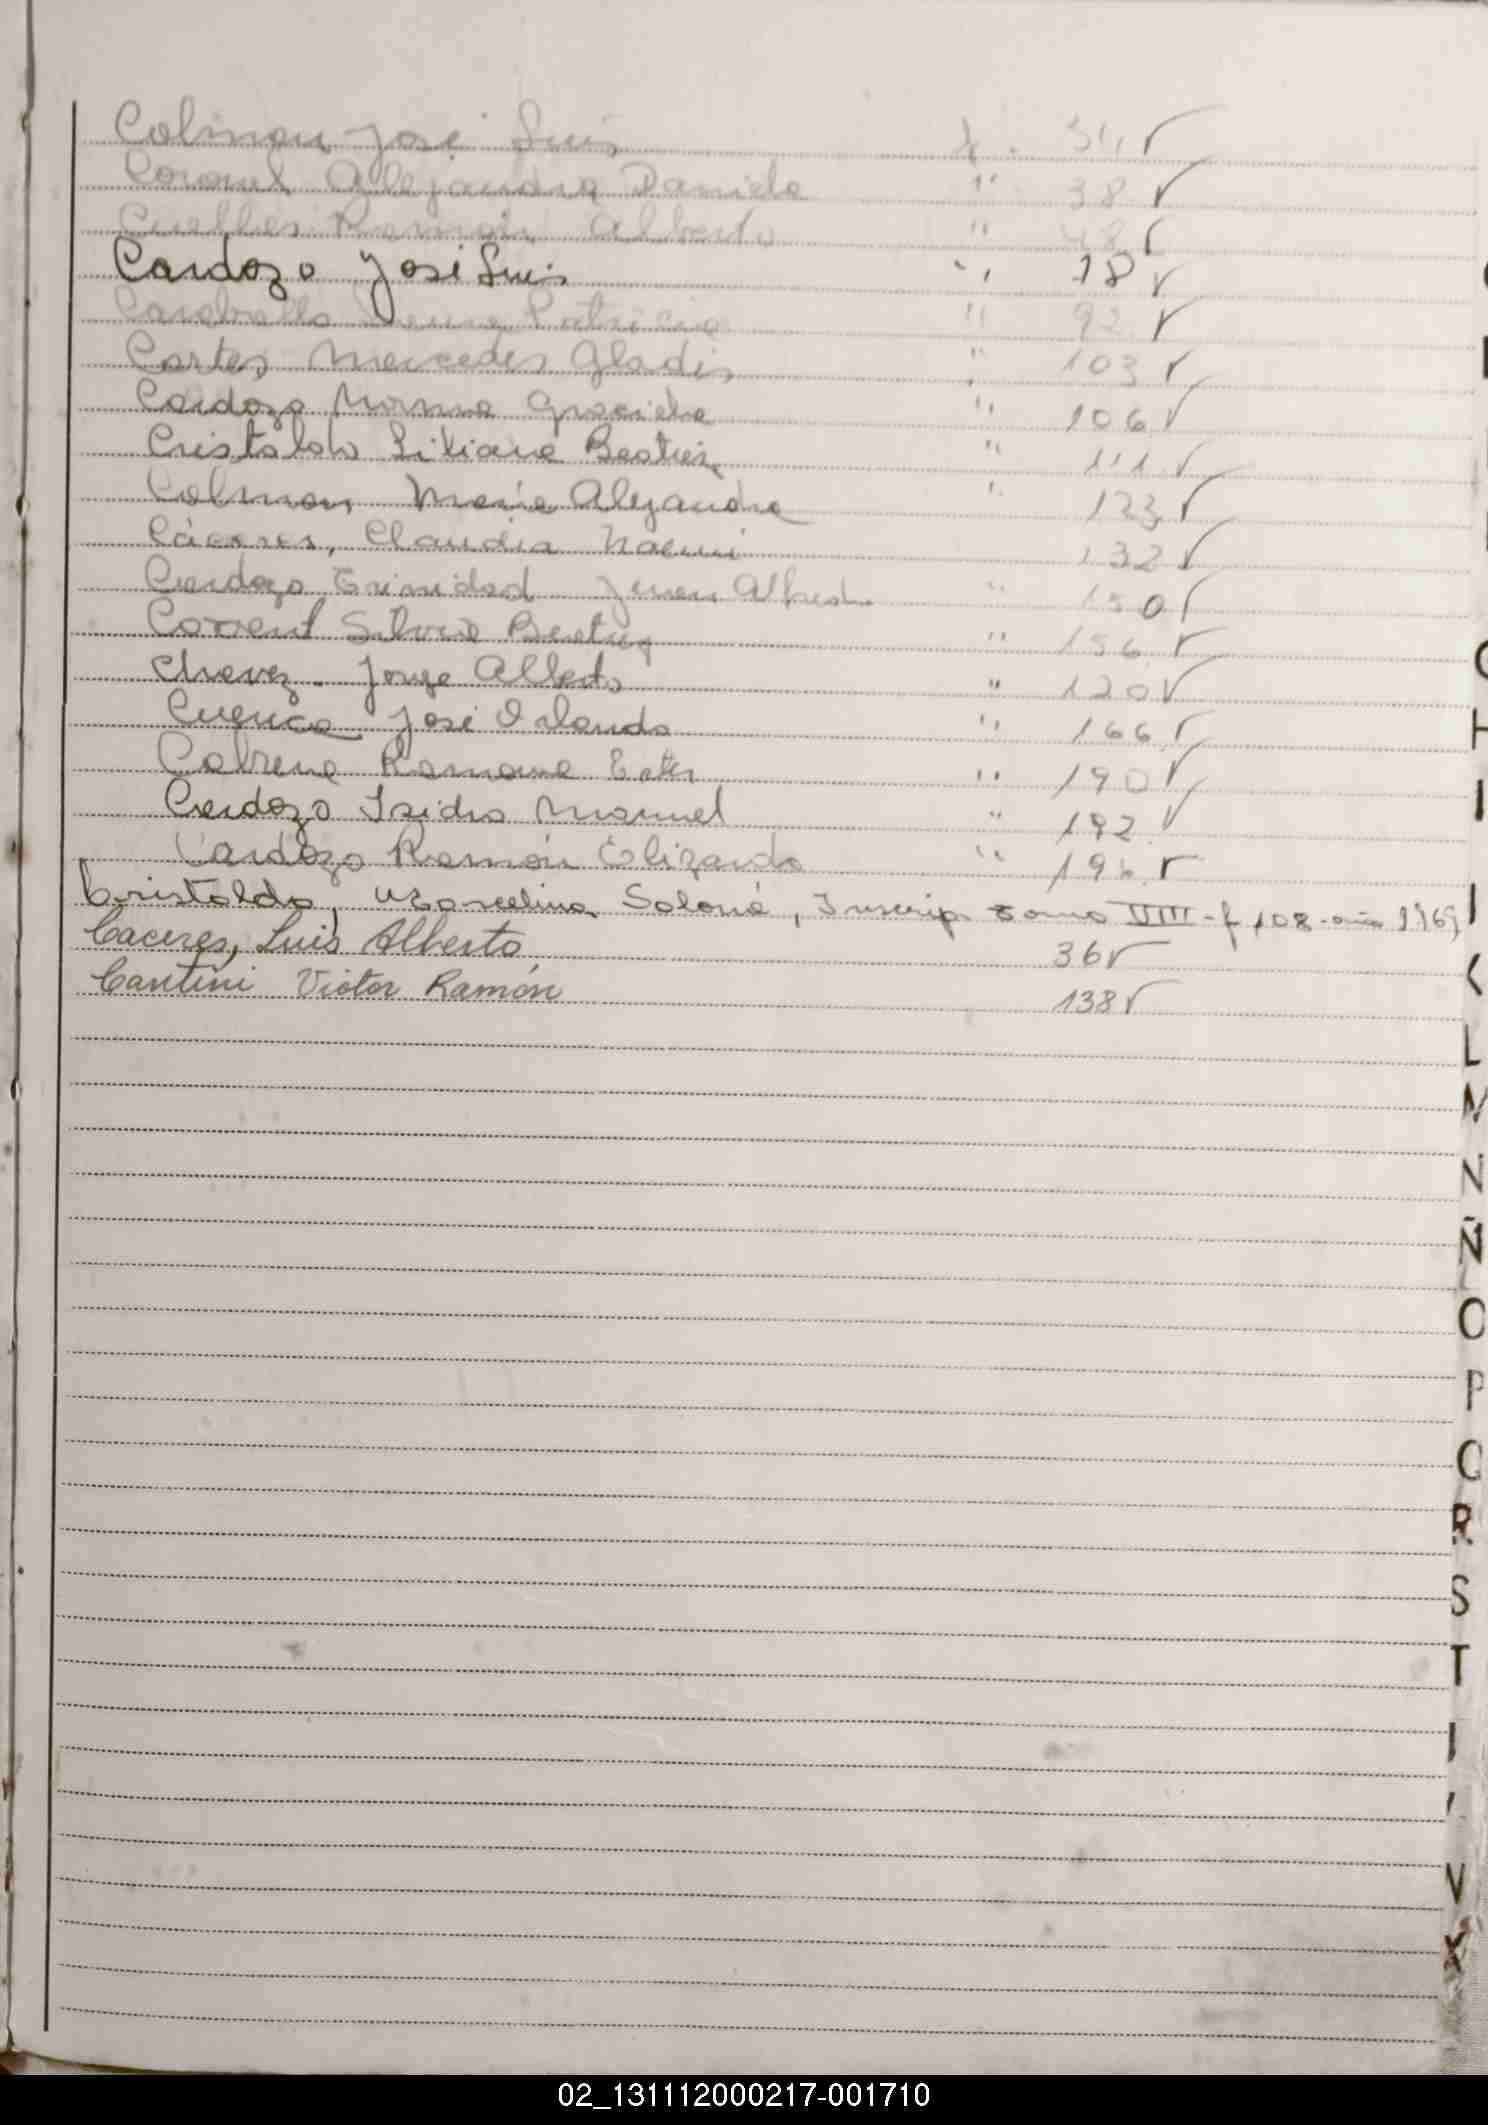 Colman José Luis f. 31 ✓
Coronel Allejandra Daniela " 38 ✓
Ramón Alberto " 48 ✓
Cardozo José Luis " 18 ✓
Caraballo Patricia " 92 ✓
Cortes Mercedes Gladis " 103 ✓
Cardozo Norma Graciela " 106 ✓
Cristaldo Liliana Beatriz " 111 ✓
Colman Maria Alejandra " 123 ✓
Cáceres, Claudia Noemi 132 ✓
Cardozo Trinidad Juan Alfredo " 150 ✓
Correnti Silvia Beatriz " 156 ✓
Chavez Jorge Alberto " 120 ✓
Cuenca José Orlando " 166 ✓
Cabrera Ramona Ester " 190 ✓
Cardozo Isidro Manuel " 192 ✓
Cardozo Ramón Elizardo " 196 ✓
Cristaldo, Marcelina Saloné, Inscrip tomo VIII - f 108 - año 1969
Caceres, Luis Alberto 36 ✓
Cantini Victor Ramón 138 ✓
H
I
K
L
M
N
Ñ
O
P
Q
R
S
T
V
X
02_131112000217-001710